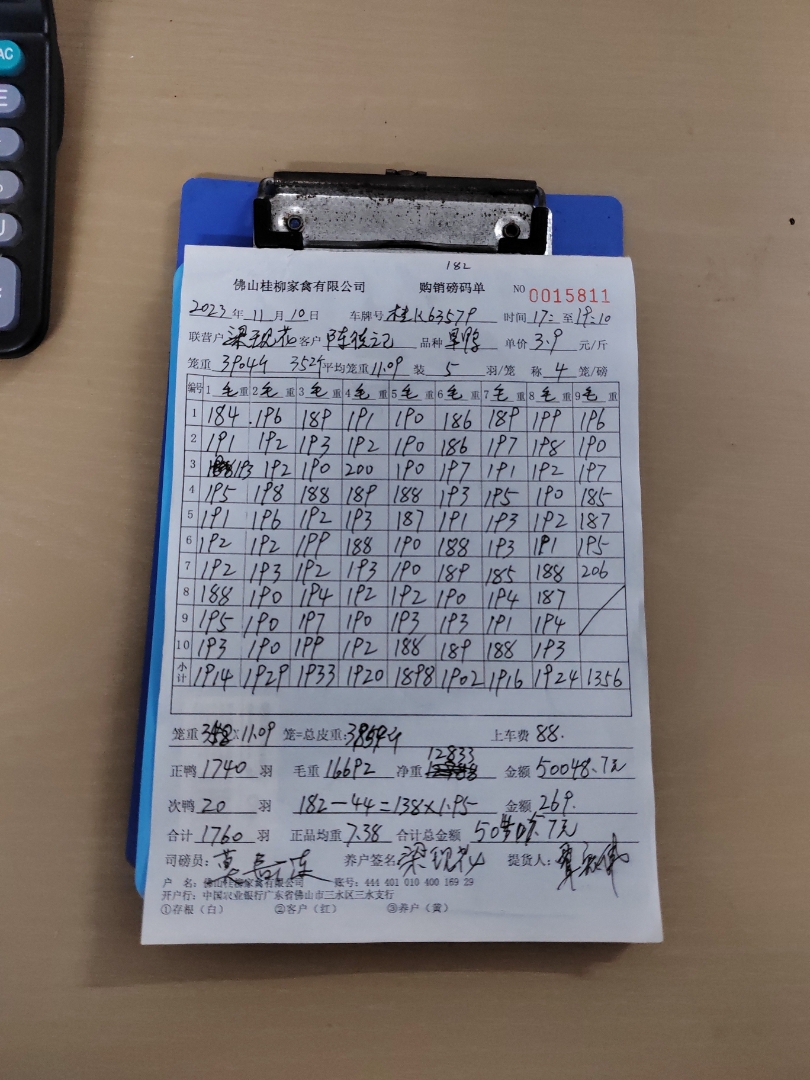 AC
182
佛山桂柳家禽有限公司 购销磅码单 NO 0015811
2023年 11月 10日 车牌号 桂K63579 时间 17: 至 19:10
联营户 梁现花 客户 品种 单价 3.9 元/斤
笼重 3904斤 352个 平均笼重 11.09 装 5 羽/笼 称 4 笼/磅
编号 1 毛重 2 毛重 3 毛重 4 毛重 5 毛重 6 毛重 7 毛重 8 毛重 9 毛重
1 184 196 189 191 190 186 189 199 196
2 191 192 193 192 190 186 197 198 190
3 193 192 190 200 190 197 191 192 197
4 195 198 188 189 188 193 195 190 185
5 191 196 192 193 187 191 193 192 187
6 192 192 199 188 190 188 193 191 195
7 192 193 192 193 190 189 185 188 206
8 188 190 194 192 192 190 194 187
9 195 190 197 190 193 193 191 194
10 193 190 199 192 188 189 188 193
小计 1914 1929 1933 1920 1898 1902 1916 1924 1356
笼重 ×11.09 笼=总皮重: 3859斤 上车费 88.
正鸭 1740 羽 毛重 16692 净重 12833 金额 50048.7元
次鸭 20 羽 182-44=138×1.95 金额 269.
合计 1760 羽 正品均重 7.38 合计总金额 .7元
司磅员: 养户签名 梁现花 提货人:
户 名: 佛山桂柳家禽有限公司 账号: 444 401 010 400 169 29
开户行: 中国农业银行广东省佛山市三水区三水支行
①存根(白) ②客户(红) ③养户(黄)